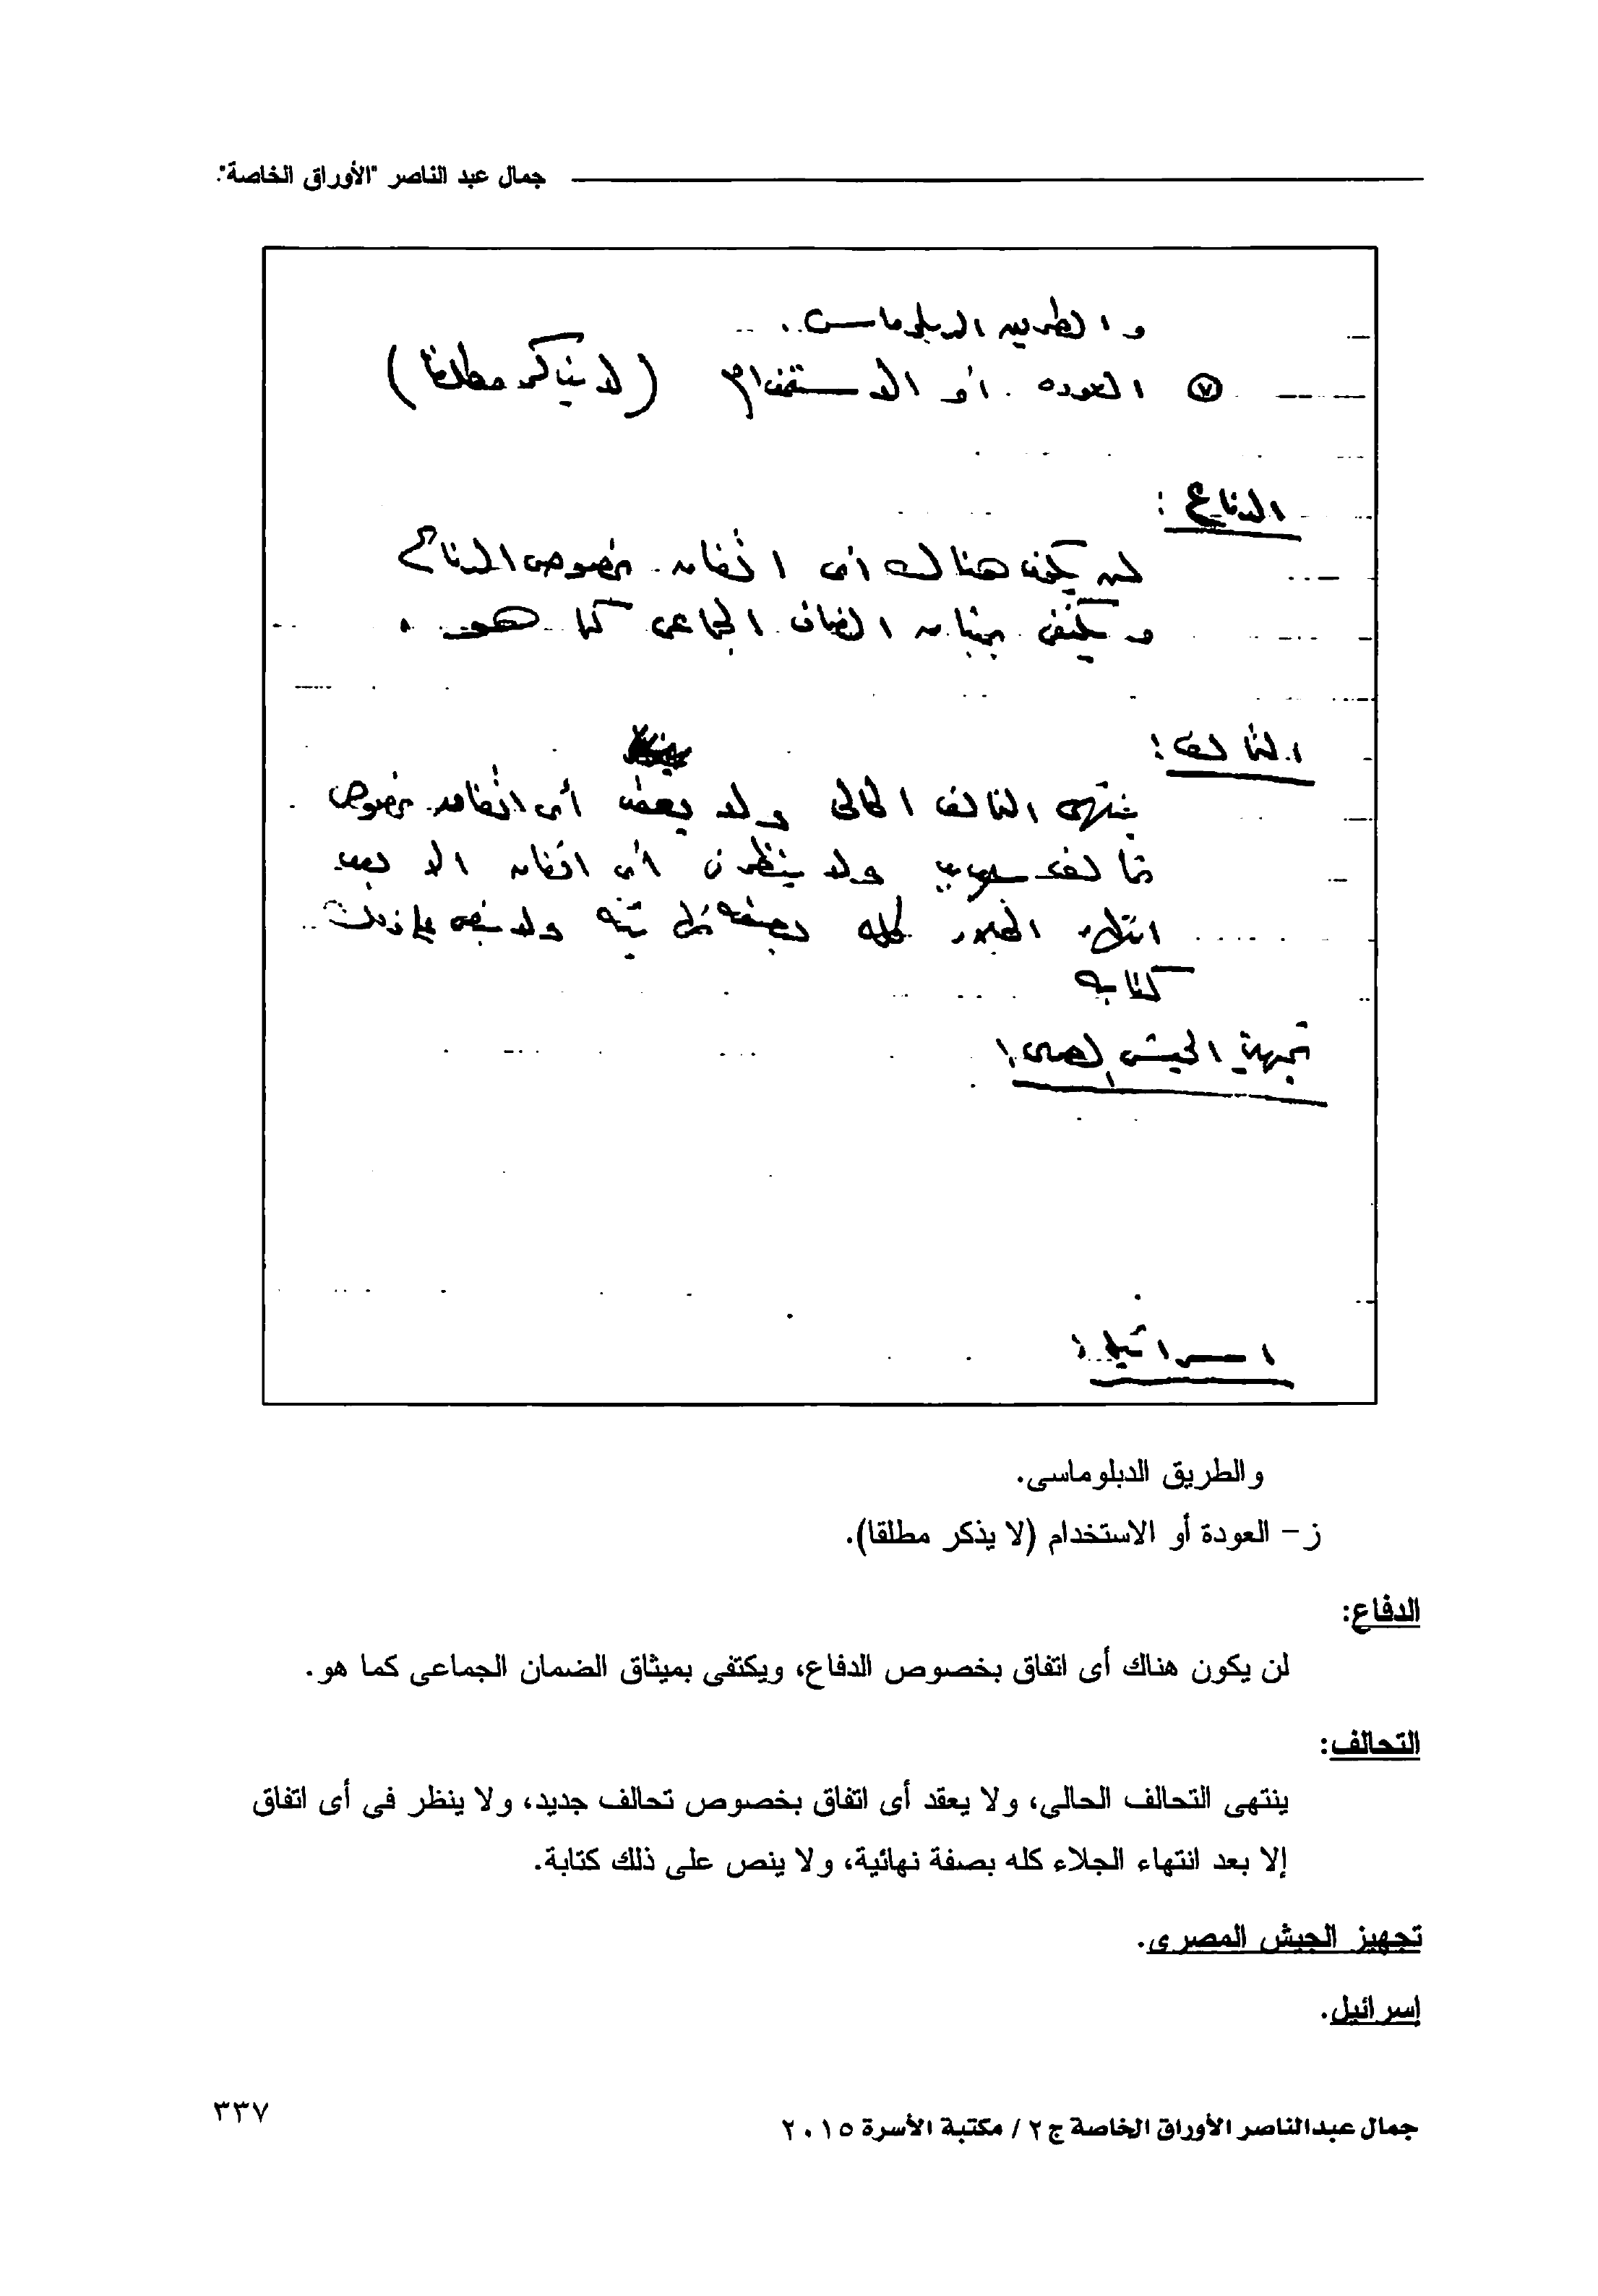 جمال عبد الناصر "الأوراق الخاصة".
والطريق الدبلوماسى.
٧ العوده أو الاستخدام (لا يذكر مطلقا)
الدفاع :
لن يكون هناك أى اتفاق بخصوص الدفاع
و يكتفى بميثاق الضمان الجماعى كما هو .
التحالف :
ينتهى التحالف الحالى ولا يعقد أى اتفاق بخصوص
تحالف جديد ولا ينظر فى أى اتفاق الا بعد
انتهاء الجلاء كله بصفه نهائيه ولا ينص على ذلك
كتابه
تجهيز الجيش المصرى :
اسرائيل :
والطريق الدبلوماسى.
ز- العودة أو الاستخدام (لا يذكر مطلقا).
الدفاع:
لن يكون هناك أى اتفاق بخصوص الدفاع، ويكتفى بميثاق الضمان الجماعى كما هو.
التحالف:
ينتهى التحالف الحالى، ولا يعقد أى اتفاق بخصوص تحالف جديد، ولا ينظر فى أى اتفاق
إلا بعد انتهاء الجلاء كله بصفة نهائية، ولا ينص على ذلك كتابة.
تجهيز الجيش المصرى.
إسرائيل.
جمال عبدالناصر الأوراق الخاصة ج٢ / مكتبة الأسرة ٢٠١٥
٣٣٧